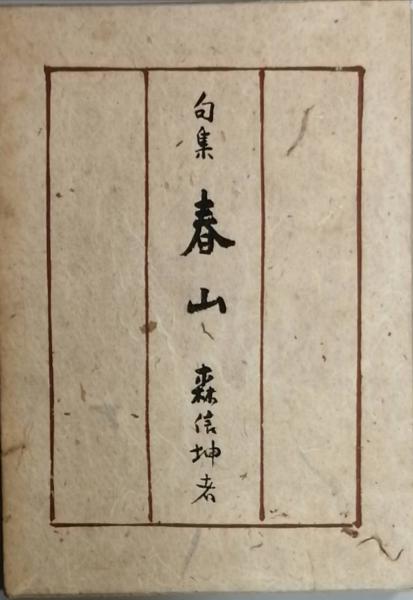 句集 春山 森信坤者